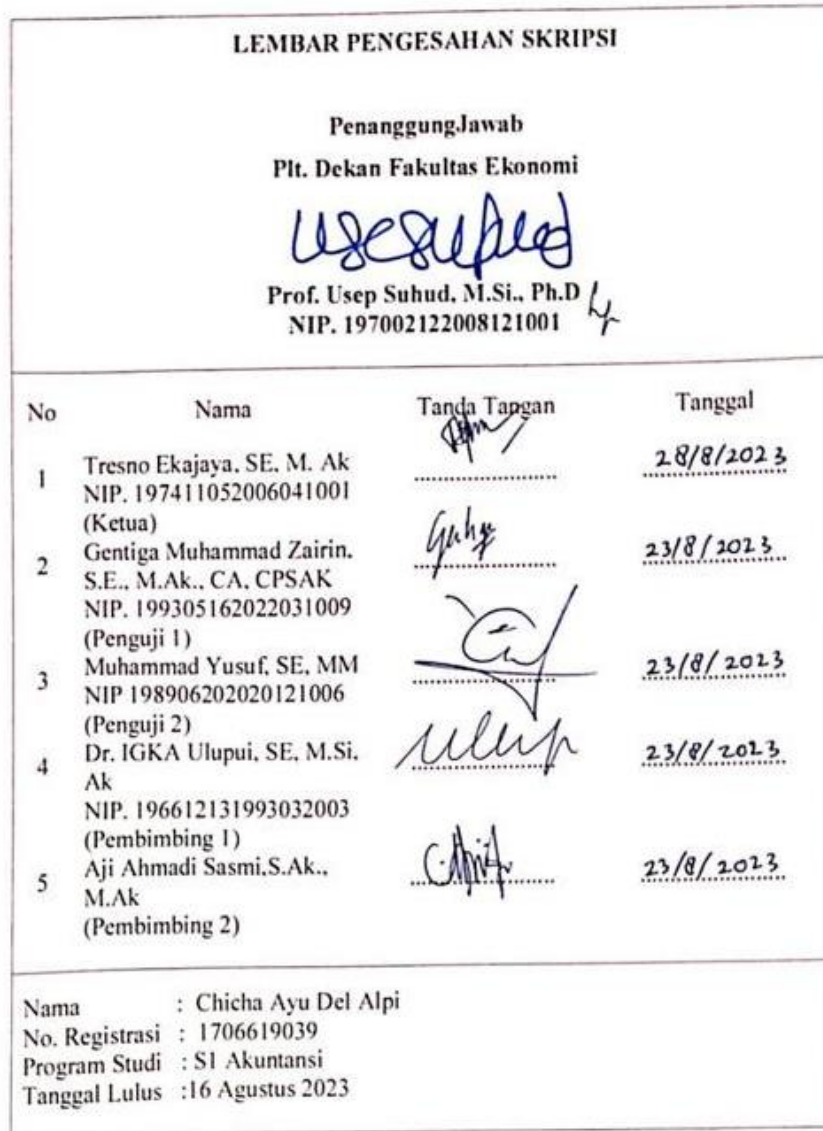 LEMBAR PENGESAHAN SKRIPSI
PenanggungJawab
Plt. Dekan Fakultas Ekonomi
Prof. Usep Suhud, M.Si., Ph.D
NIP. 197002122008121001
No Nama Tanda Tangan Tanggal
1 Tresno Ekajaya, SE, M. Ak 28/8/2023
NIP. 197411052006041001
(Ketua)
2 Gentiga Muhammad Zairin, 23/8/2023
S.E., M.Ak., CA, CPSAK
NIP. 199305162022031009
(Penguji 1)
3 Muhammad Yusuf, SE, MM 23/8/2023
NIP 198906202020121006
(Penguji 2)
4 Dr. IGKA Ulupui, SE, M.Si, 23/8/2023
Ak
NIP. 196612131993032003
(Pembimbing 1)
5 Aji Ahmadi Sasmi,S.Ak., 23/8/2023
M.Ak
(Pembimbing 2)
Nama : Chicha Ayu Del Alpi
No. Registrasi : 1706619039
Program Studi : S1 Akuntansi
Tanggal Lulus :16 Agustus 2023